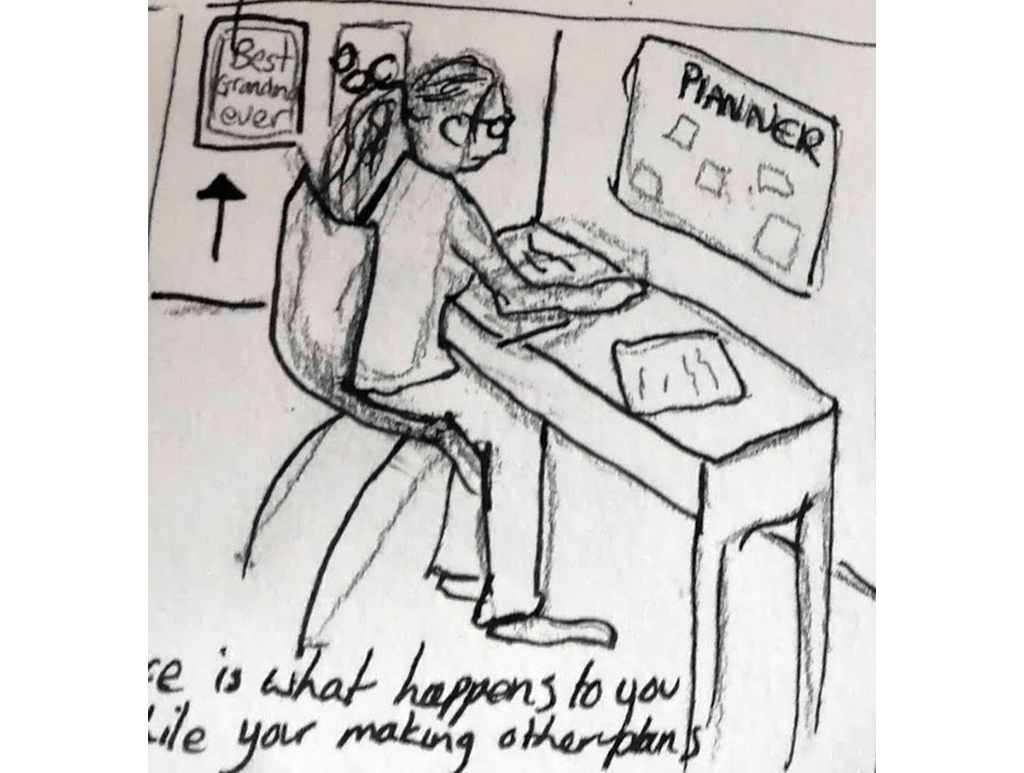 Best
Grandma
ever
PLANNER
is what happens to you
your making other plans